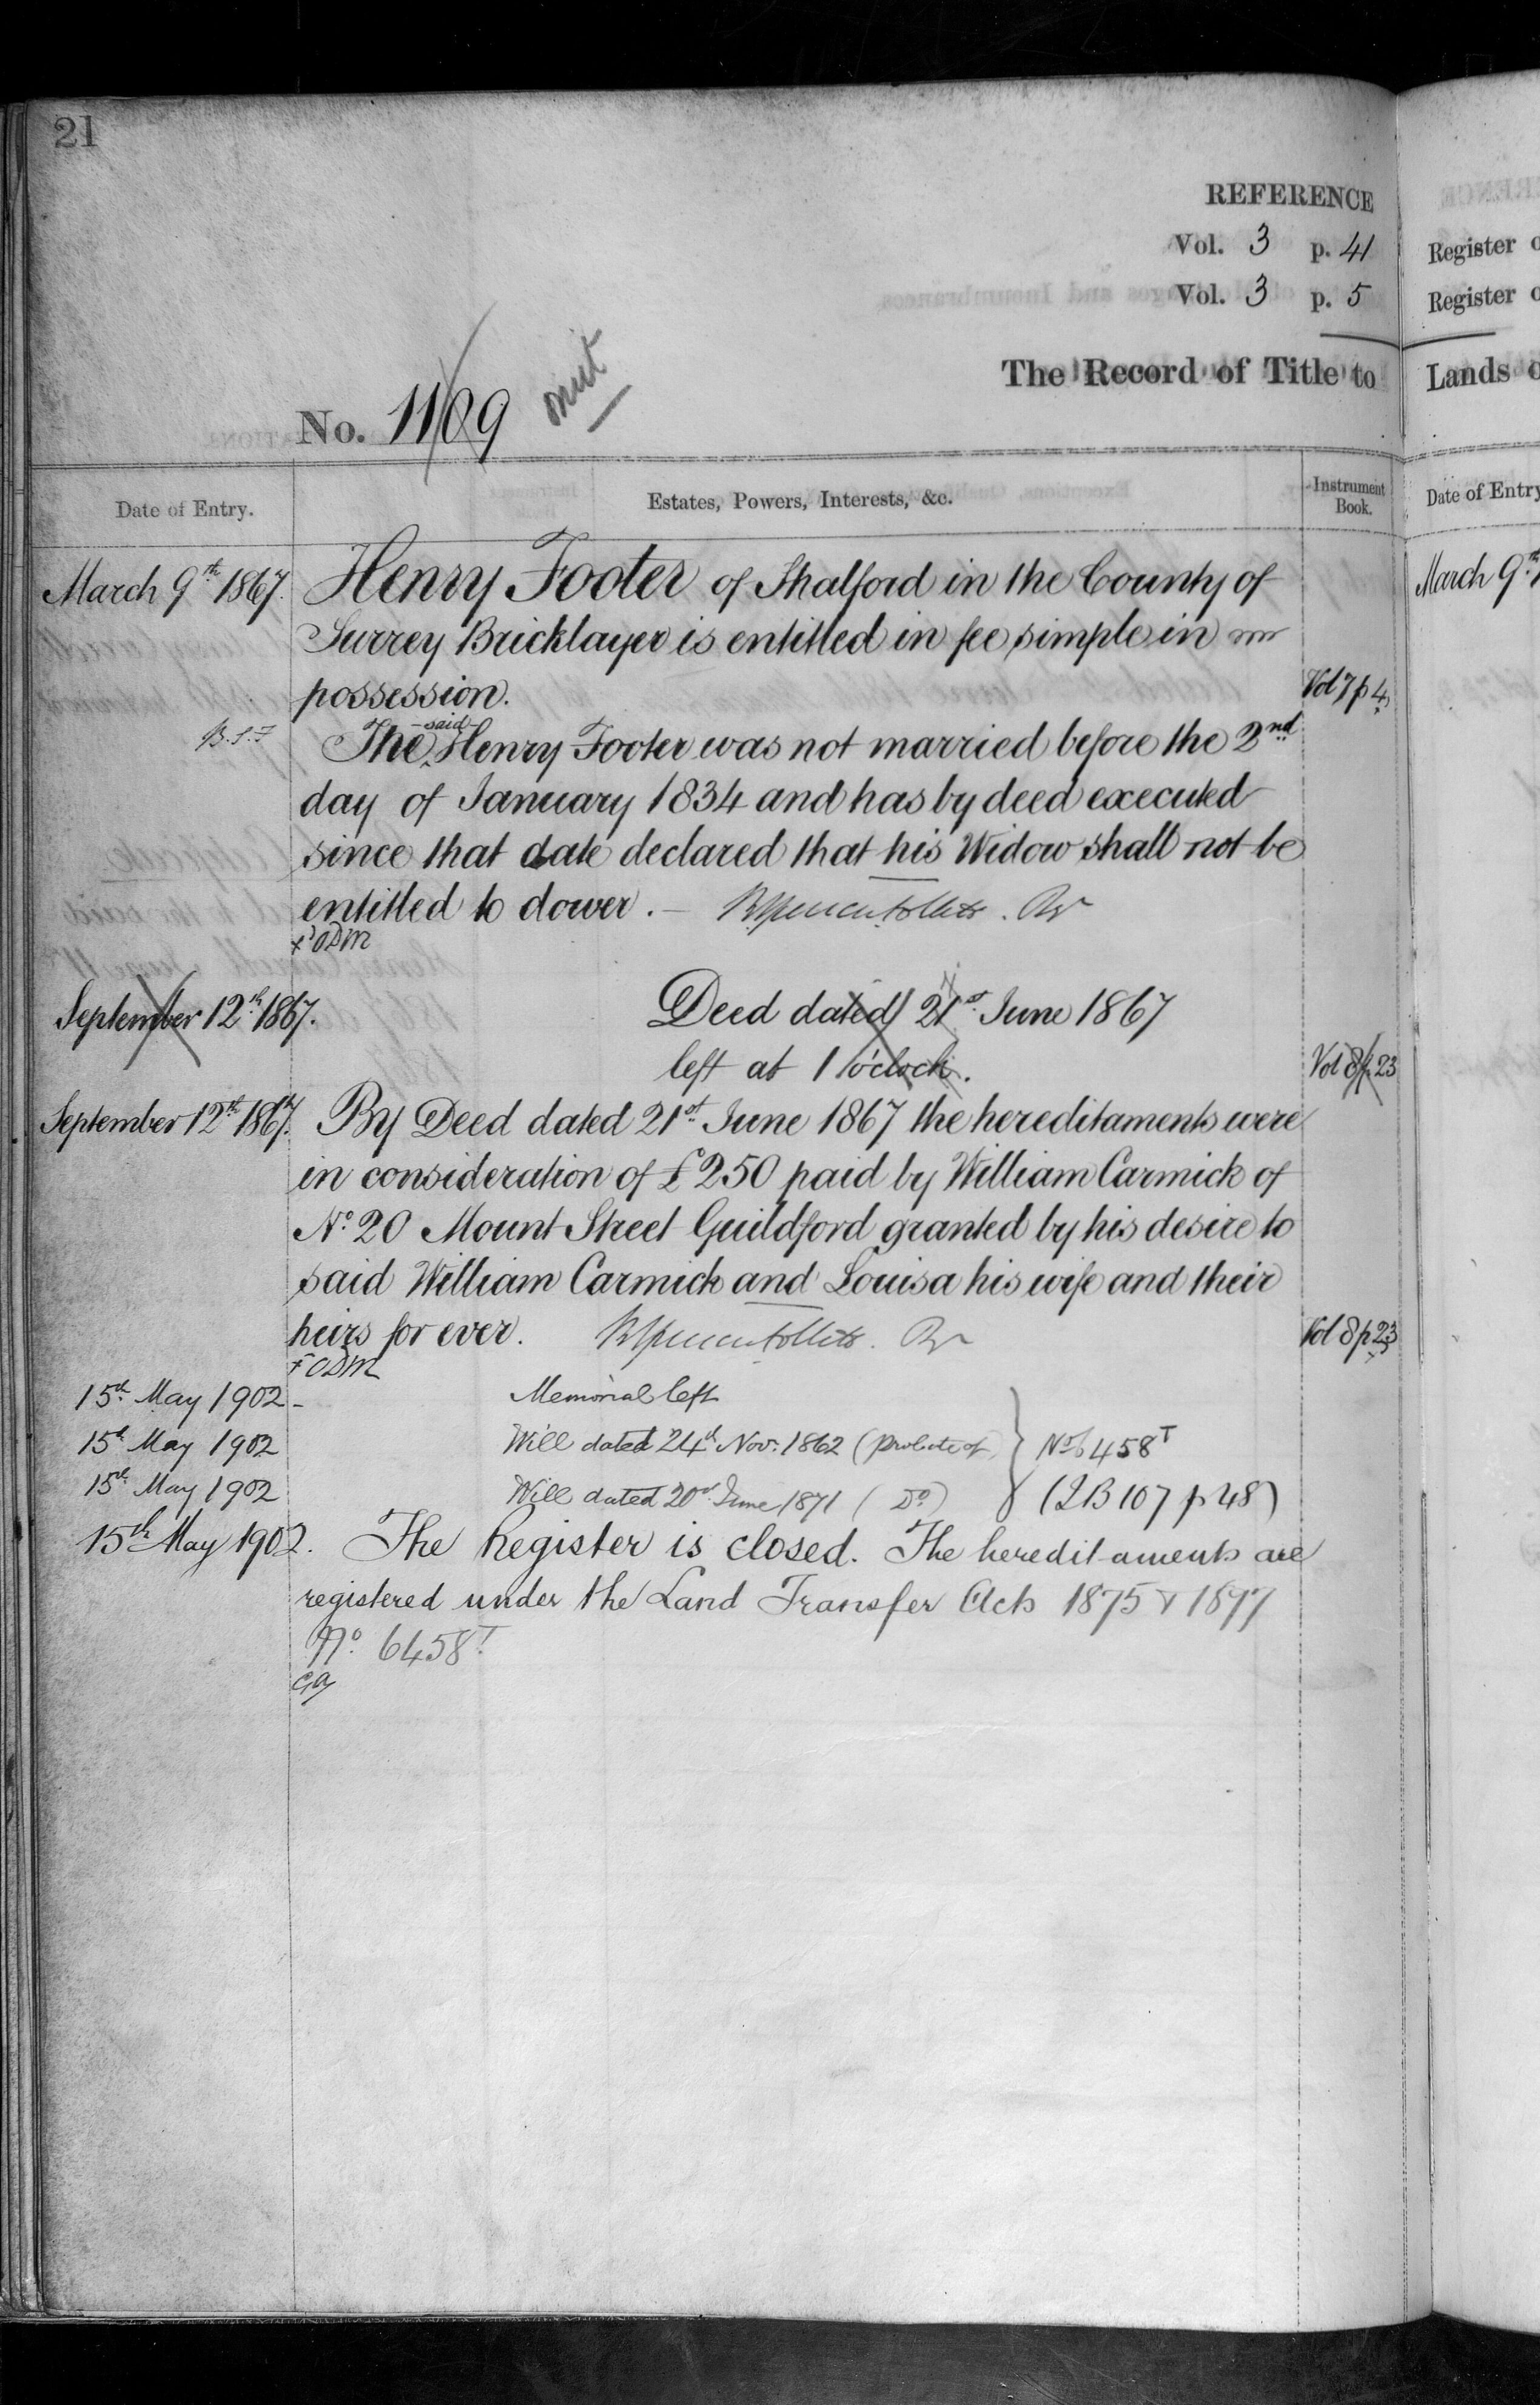 21
REFERENCE
Vol. 3 p. 41
Vol. 3 p. 5
The Record of Title to
No. 1109 omit
Date of Entry.
Estates, Powers, Interests, &c.
Instrument Book.
March 9th 1867. Henry Footer of Shalford in the County of
Surrey Bricklayer is entitled in fee simple in
possession. Vol 7 p 4
B.S.F The said Henry Footer was not married before the 2nd
day of January 1834 and has by deed executed
since that date declared that his Widow shall not be
entitled to dower. —
September 12th 1867. Deed dated 21st June 1867
left at 1 o'clock. Vol 8 p 23
September 12th 1867. By Deed dated 21st June 1867 the hereditaments were
in consideration of £250 paid by William Carmick of
No. 20 Mount Street Guildford granted by his desire to
said William Carmick and Louisa his wife and their
heirs for ever. Vol 8 p 23
15th May 1902 - Memorial left
15th May 1902 Will dated 24th Nov. 1862 (probate of) No 6458T
15th May 1902 Will dated 20th June 1871 (Do) (IB 107 p 48)
15th May 1902. The Register is closed. The hereditaments are
registered under the Land Transfer Acts 1875 & 1897
No. 6458T
Register
Register
Lands
Date of Entry
March 9th